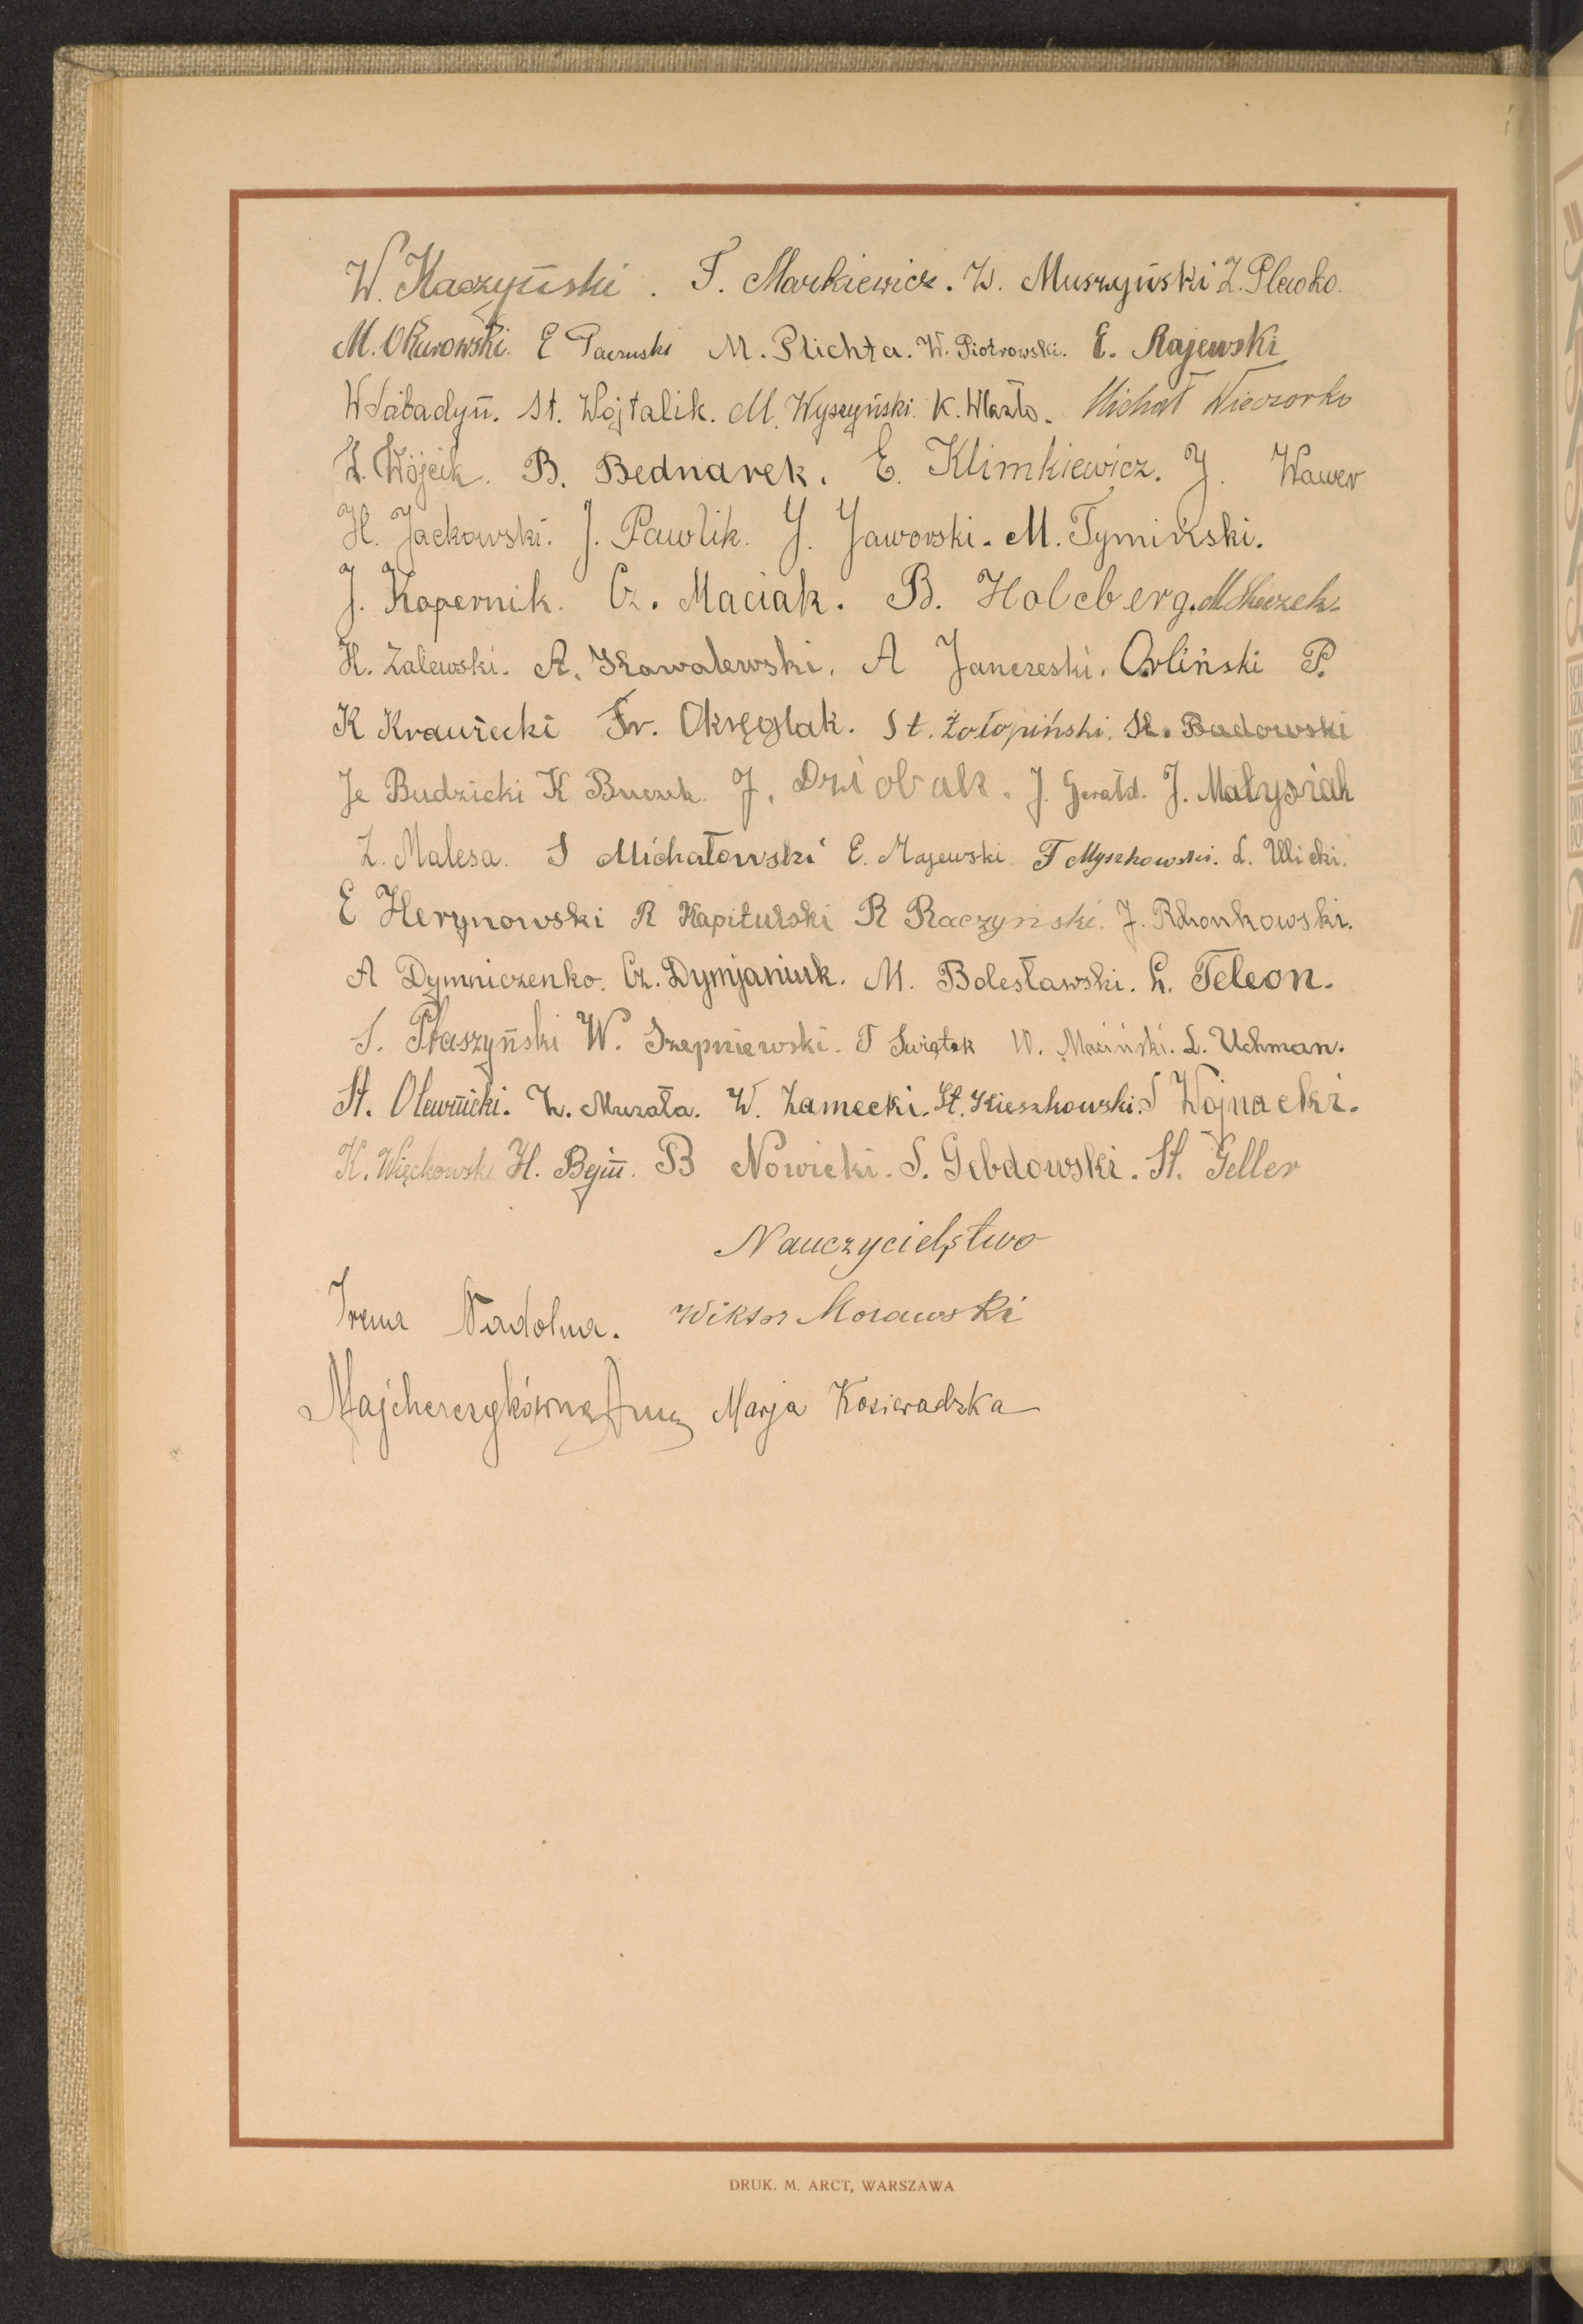 W. Kaczyński. F. Markiewicz. W. Muszyński Z. Plewko.
M. Okurowski. E M. Plichta. W. Piotrowski. E. Rajewski
W St. Wojtalik. M. Wyszyński. K. Wlazło. Michał Wieczorko
W. Wójcik. B. Bednarek. E. Klimkiewicz. J. Wawer
H. Jackowski. J. Pawlik. J. Jaworski. M. Tymiński.
J. Kopernik. Cz. Maciak. B. Holcberg. M.
H. Zalewski. A. Kowalewski. A Janczeski. Orliński P.
K Krawiecki Fr. Okręglak. St. Żołopiński. St. Budowski
Je Budzicki K Buczek. J. Dziobak. J. Gerałd. J. Małysiak
Z. Malesa. S Michałowski E. Majewski F Myszkowski. L. Ulicki.
E Herynowski R Kapitulski R Raczyński. J.
A Dymniczenko. Cz. Dymjaniuk. M. Bolesławski. L. Teleon.
S. Ptaszyński W. Szepniewski. T Swiątek W. Maciński. L. Uchman.
St. Olewnicki. Z. Murzała. W. Zamecki. St. Kieszkowski. S Wojnacki.
K. Więckowski H. Bejm. B Nowicki. S. Gebdowski. St. Geller
Nauczycielstwo
Irena Nadolna. Wiktor Morawski
Majcherczykówna Anna Marja Kosieradzka
DRUK. M. ARCT, WARSZAWA